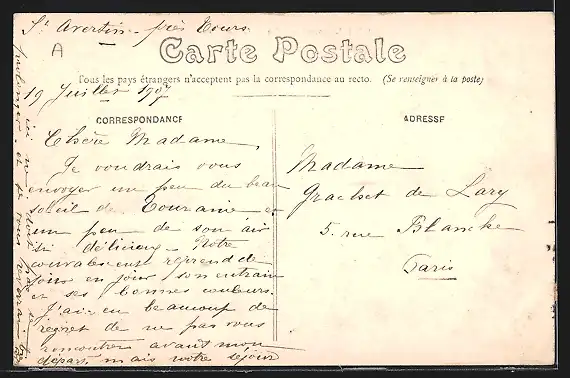 St Avertin - près Tours
A
Carte Postale
Tous les pays étrangers n'acceptent pas la correspondance au recto. (Se renseigner à la poste)
19 Juillet 1907
CORRESPONDANCE
Chère Madame,
Je voudrais vous
envoyer un peu du beau
soleil de Touraine et
un peu de son air
si délicieux - Notre
convalescente reprend de
jour en jour son entrain
et ses bonnes couleurs.
J'ai eu beaucoup de
regret de ne pas vous
rencontrer avant mon
départ, mais notre séjour
ADRESSE
Madame
de Lary
5 rue Blanche
Paris